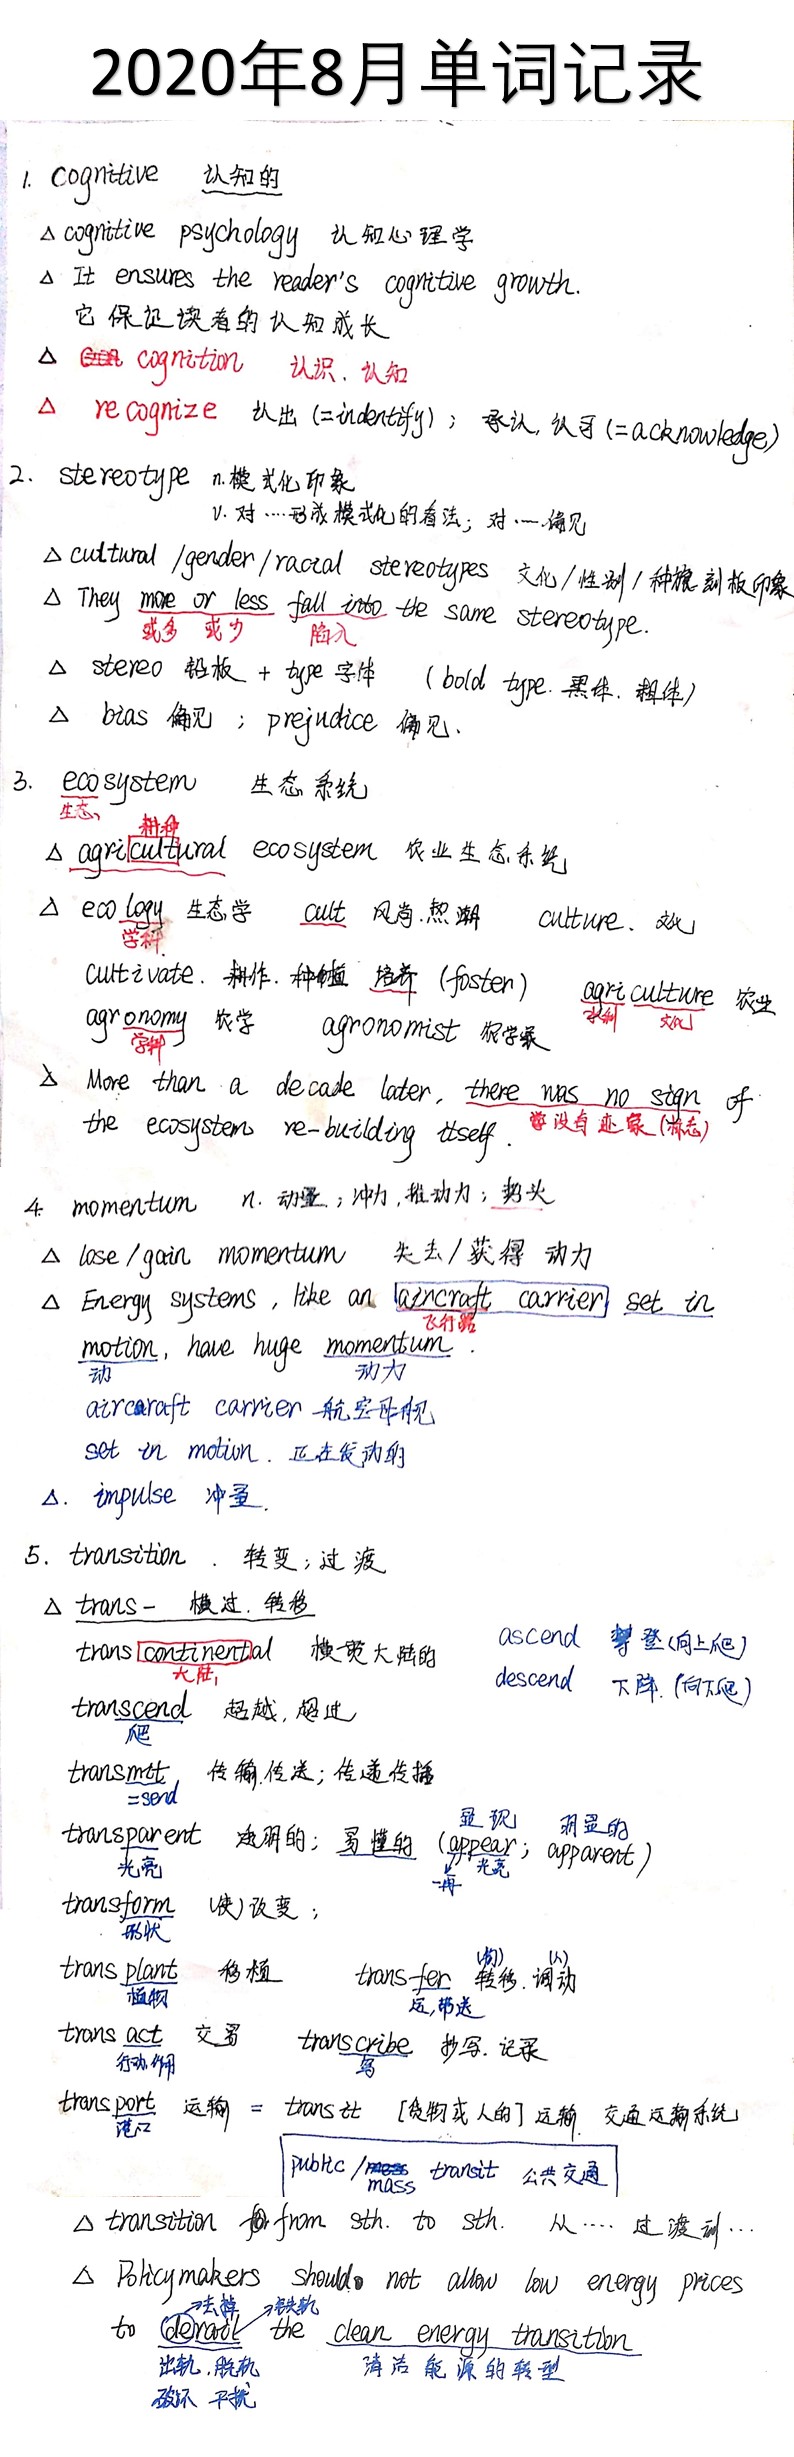 2020年8月单词记录
1. cognitive 认知的
△ cognitive psychology 认知心理学
△ It ensures the reader's cognitive growth.
它保证读者的认知成长
△ cognition 认识、认知
△ recognize 认出 (=indentify) ; 承认, 认可 (=acknowledge)
2. stereotype n.模式化印象
v. 对……形成模式化的看法; 对……偏见
△ cultural /gender/racial stereotypes 文化/性别/种族刻板印象
△ They more or less fall into the same stereotype.
或多 或少 陷入
△ stereo 铅板 + type 字体 (bold type. 黑体. 粗体)
△ bias 偏见 ; prejudice 偏见.
3. ecosystem 生态系统
生态
耕种
△ agricultural ecosystem 农业生态系统
△ ecology 生态学 cult 风尚.热潮 culture. 文化
学科
cultivate. 耕作. 种植 培养 (foster) agriculture 农业
agronomy 农学 agronomist 农学家
学科 文化
△ More than a decade later, there was no sign of
the ecosystem re-building itself.
没有迹象(标志)
4 momentum n. 动量 ; 冲力, 推动力 ; 势头
△ lose/gain momentum 失去/获得 动力
△ Energy systems, like an aircraft carrier set in
飞行器
motion, have huge momentum.
动 动力
aircaraft carrier 航空母舰
set in motion. 正在发动的
△. impulse 冲量.
5. transition . 转变; 过渡
△ trans- 横过. 转移
transcontinental 横贯大陆的 ascend 攀登(向上爬)
大陆 descend 下降. (向下爬)
transcend 超越, 超过
爬
transmit 传输.传送; 传递传播
=send
显现 明显的
transparent 透明的; 易懂的 (appear; apparent)
光亮 一再 光亮
transform (使)改变;
形状
(物) (人)
transplant 移植 transfer 转移. 调动
植物 运,带送
transact 交易 transcribe 抄写. 记录
行动 作用 写
transport 运输 = transit [货物或人的] 运输 交通运输系统
港口
public / mass transit 公共交通
△ transition from sth. to sth. 从…. 过渡到…
△ Policymakers should not allow low energy prices
去掉 铁轨
to derail the clean energy transition
出轨. 脱轨 清洁能源的转型
破坏 干扰